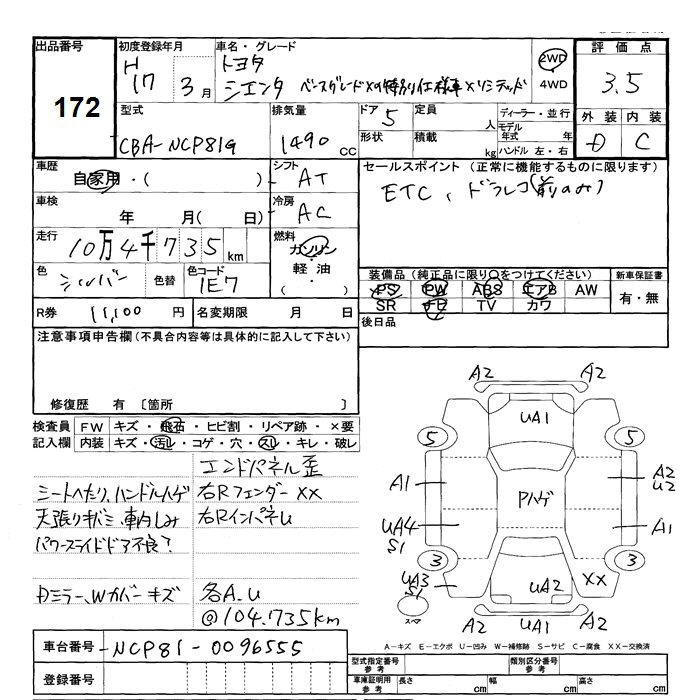 出品番号
172
初度登録年月
H17 3月
車名・グレード
トヨタ
シエンタ
2WD
4WD
評価点
3.5
外装 内装
D C
型式
CBA-NCP81G
排気量
1490 cc
ドア 5
形状
定員 人
積載 kg
ディーラー・並行
モデル年式 年
ハンドル 左・右
車歴
自家用・( )
シフト
AT
セールスポイント (正常に機能するものに限ります)
ETC、ドラレコ(前のみ)
車検
年 月( 日)
冷房
AC
走行
10万4千735km
燃料
ガソリン
軽油
( ・ )
色
シルバー
色替
色コード
1E7
装備品 (純正品に限り○をつけてください)
PS PW ABS エアB AW
SR ナビ TV カワ
新車保証書
有・無
R券 11,100 円
名変期限 月 日
後日品
注意事項申告欄 (不具合内容等は具体的に記入して下さい)
修復歴 有 〔箇所 〕
検査員記入欄
FW キズ・飛石・ヒビ割・リペア跡・×要
内装 キズ・汚れ・コゲ・穴・スレ・キレ・破レ
エンドパネル歪
シートへたり、ハンドルハゲ 右Rフェンダー XX
天張りキバミ、車内しみ 右RインパネU
パワースライドドア不良?
Dミラー、Wカバーキズ 各A、U
@104,735km
A2 A2
UA1
5 5
A1 Pハゲ A2 U2
UA4 S1 A1
3 3
UA3 S1 UA2 XX
スペア
A2 UA1 A2
A-キズ E-エクボ U-凹み W-補修跡 S-サビ C-腐食 XX-交換済
車台番号 NCP81-0096555
登録番号
型式指定番号 参考
類別区分番号 参考
車庫証明用 参考
長さ cm 幅 cm 高さ cm